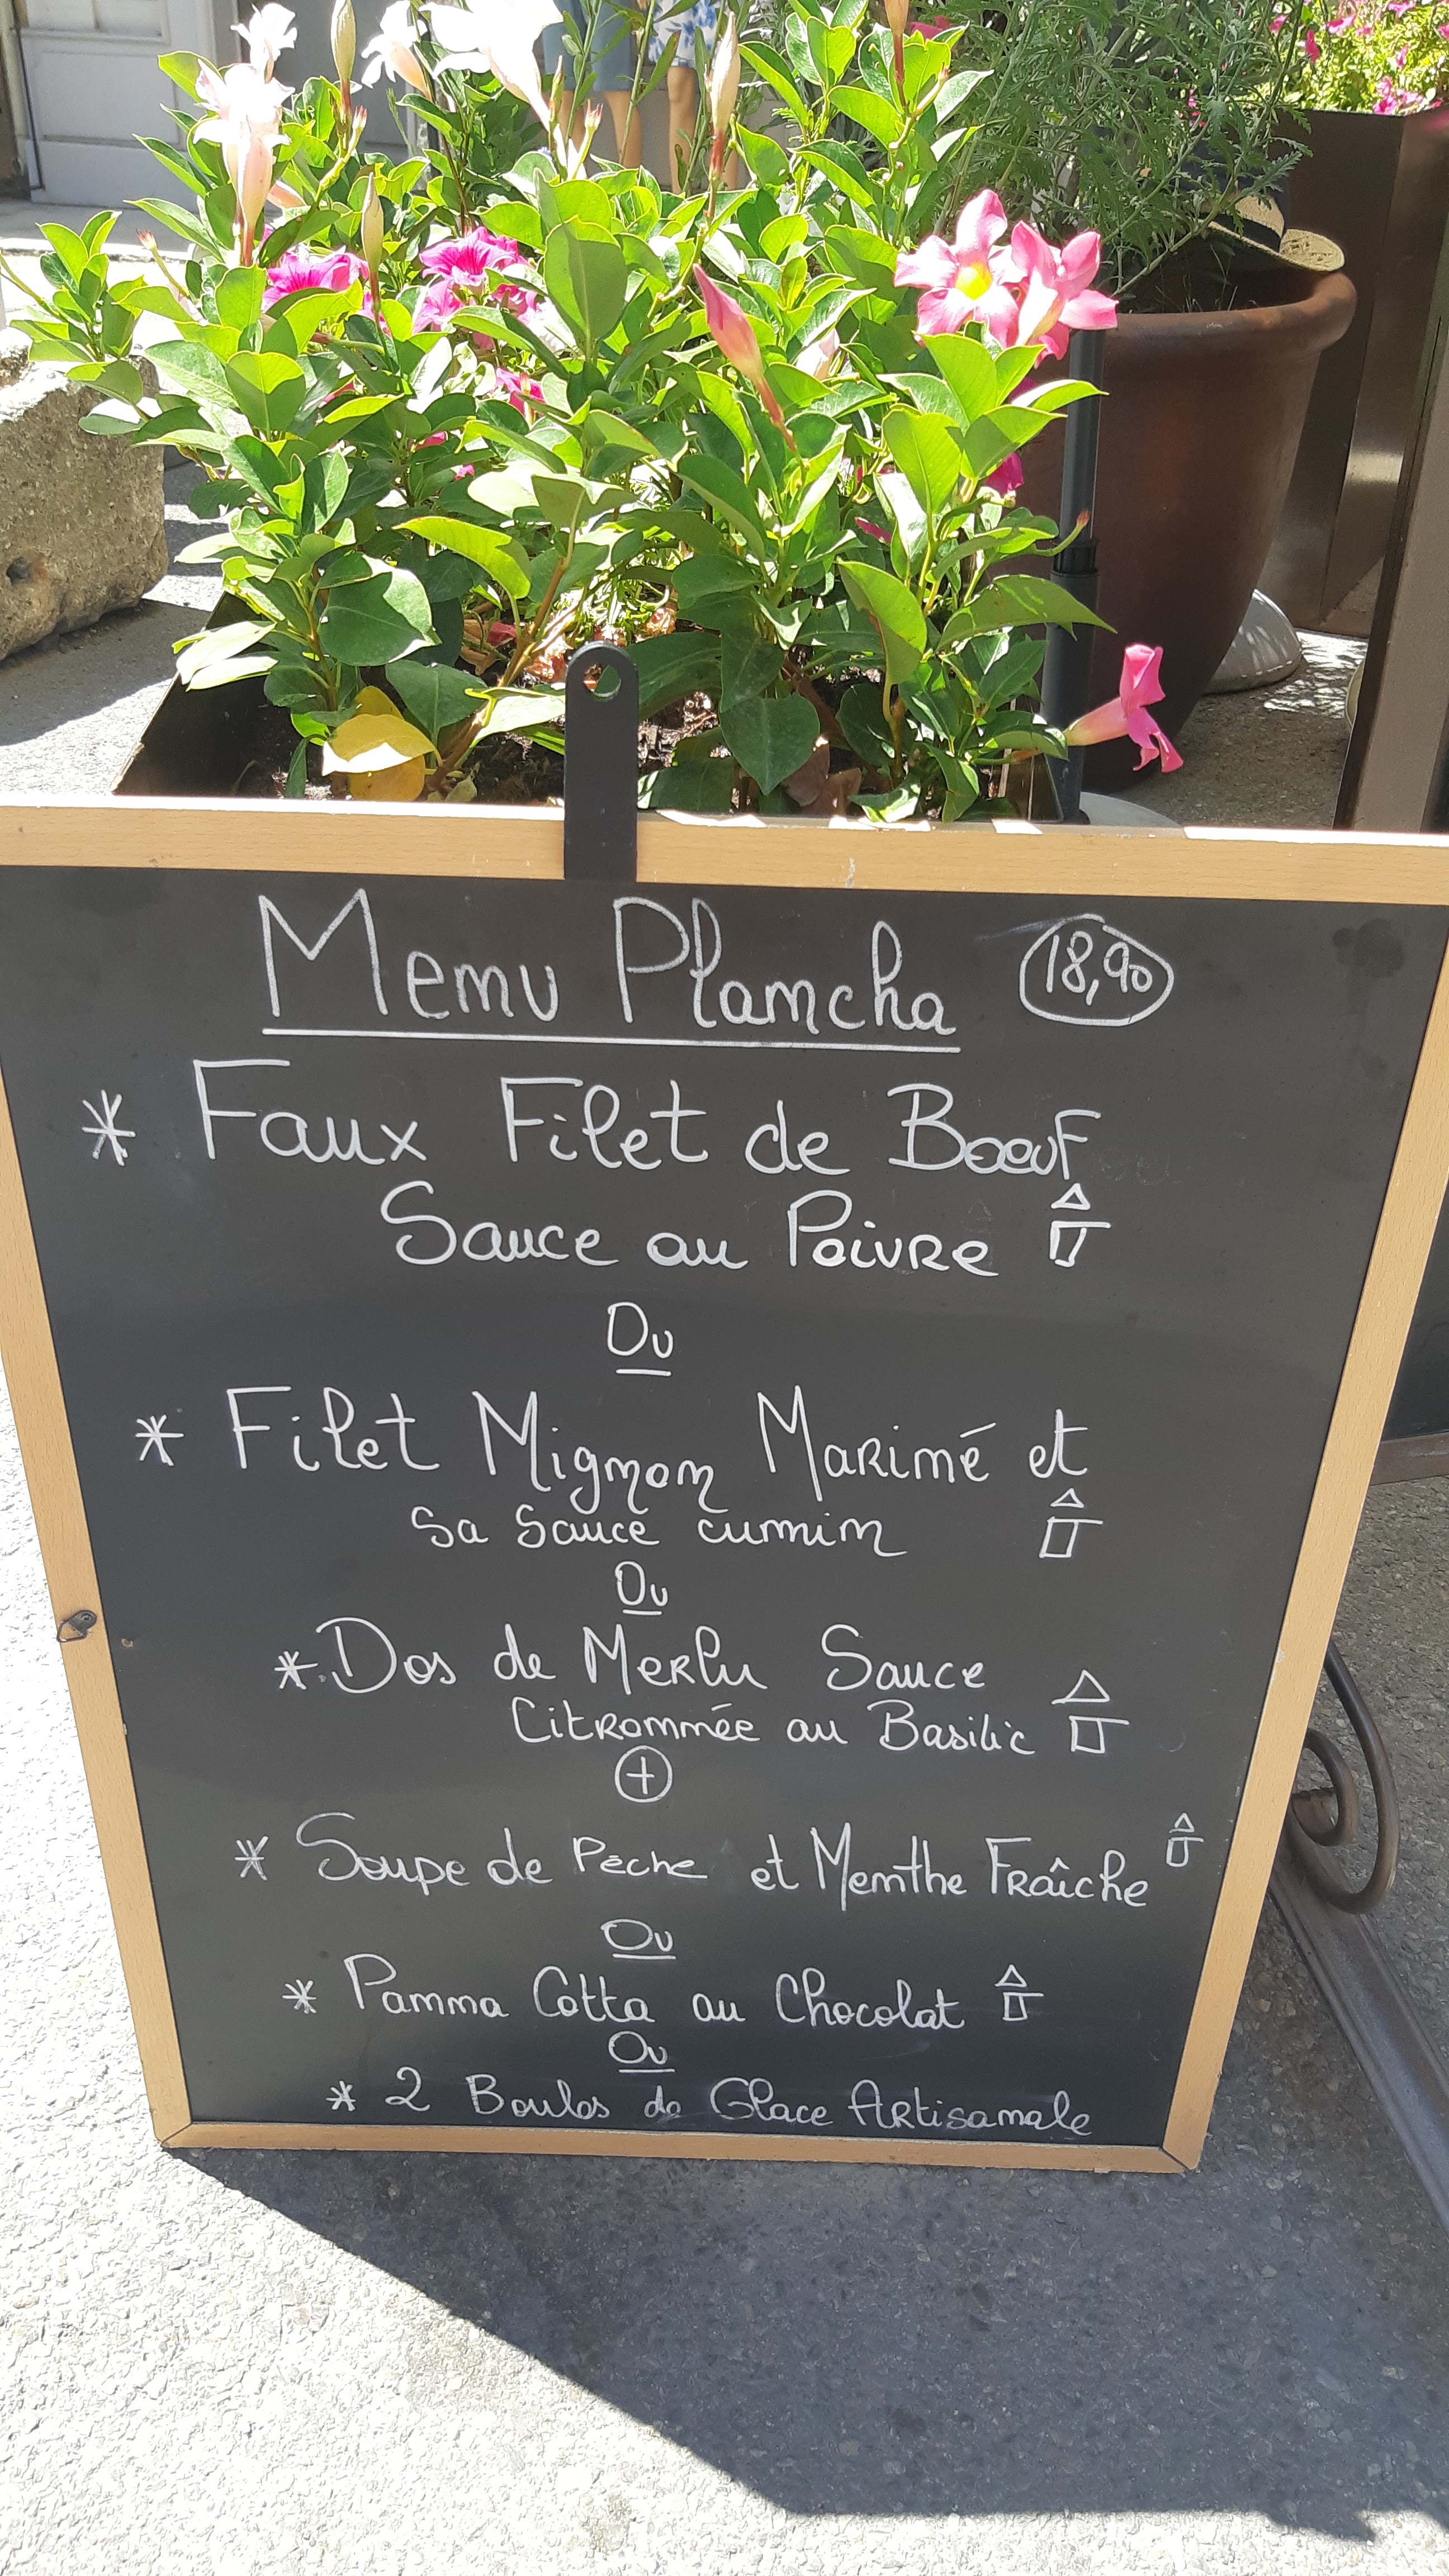 Menu Plancha 18,90
* Faux Filet de Boeuf
Sauce au Poivre
Ou
* Filet Mignon Mariné et
Sa Sauce cumin
Ou
* Dos de Merlu Sauce
Citronnée au Basilic
+
* Soupe de Pêche et Menthe Fraîche
Ou
* Panna Cotta au Chocolat
Ou
* 2 Boules de Glace Artisanale